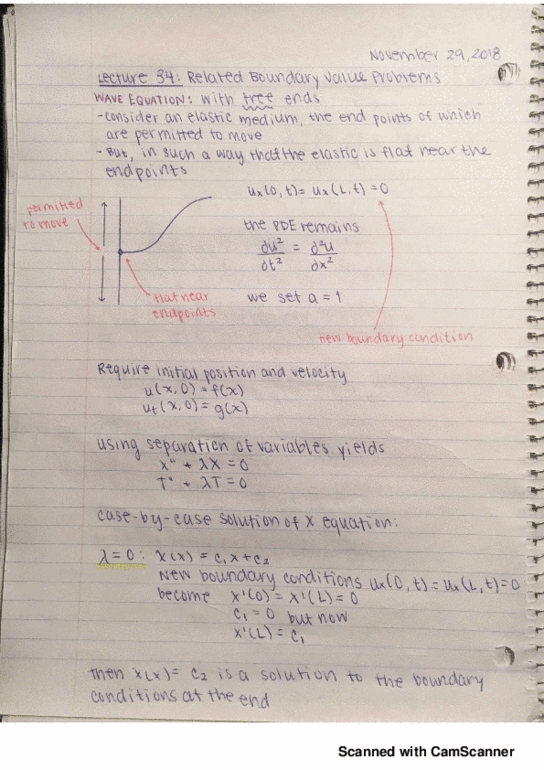 November 29, 2018
Lecture 34: Related Boundary Value Problems
WAVE EQUATION: with free ends
- consider an elastic medium, the end points of which
are permitted to move
- But, in such a way that the elastic is flat near the
endpoints
permitted
to move
uₓ(0, t) = uₓ(L, t) = 0
the PDE remains
∂u²/∂t² = ∂²u/∂x²
flat near
endpoints
we set a = 1
new boundary condition
Require initial position and velocity
u(x, 0) = f(x)
uₜ(x, 0) = g(x)
using separation of variables yields
X" + λX = 0
T" + λT = 0
case-by-case solution of X equation:
λ = 0: X(x) = c₁x + c₂
New boundary conditions uₓ(0, t) = uₓ(L, t) = 0
become X'(0) = X'(L) = 0
c₁ = 0 but now
X'(L) = c₁
Then X(x) = c₂ is a solution to the boundary
conditions at the end
Scanned with CamScanner